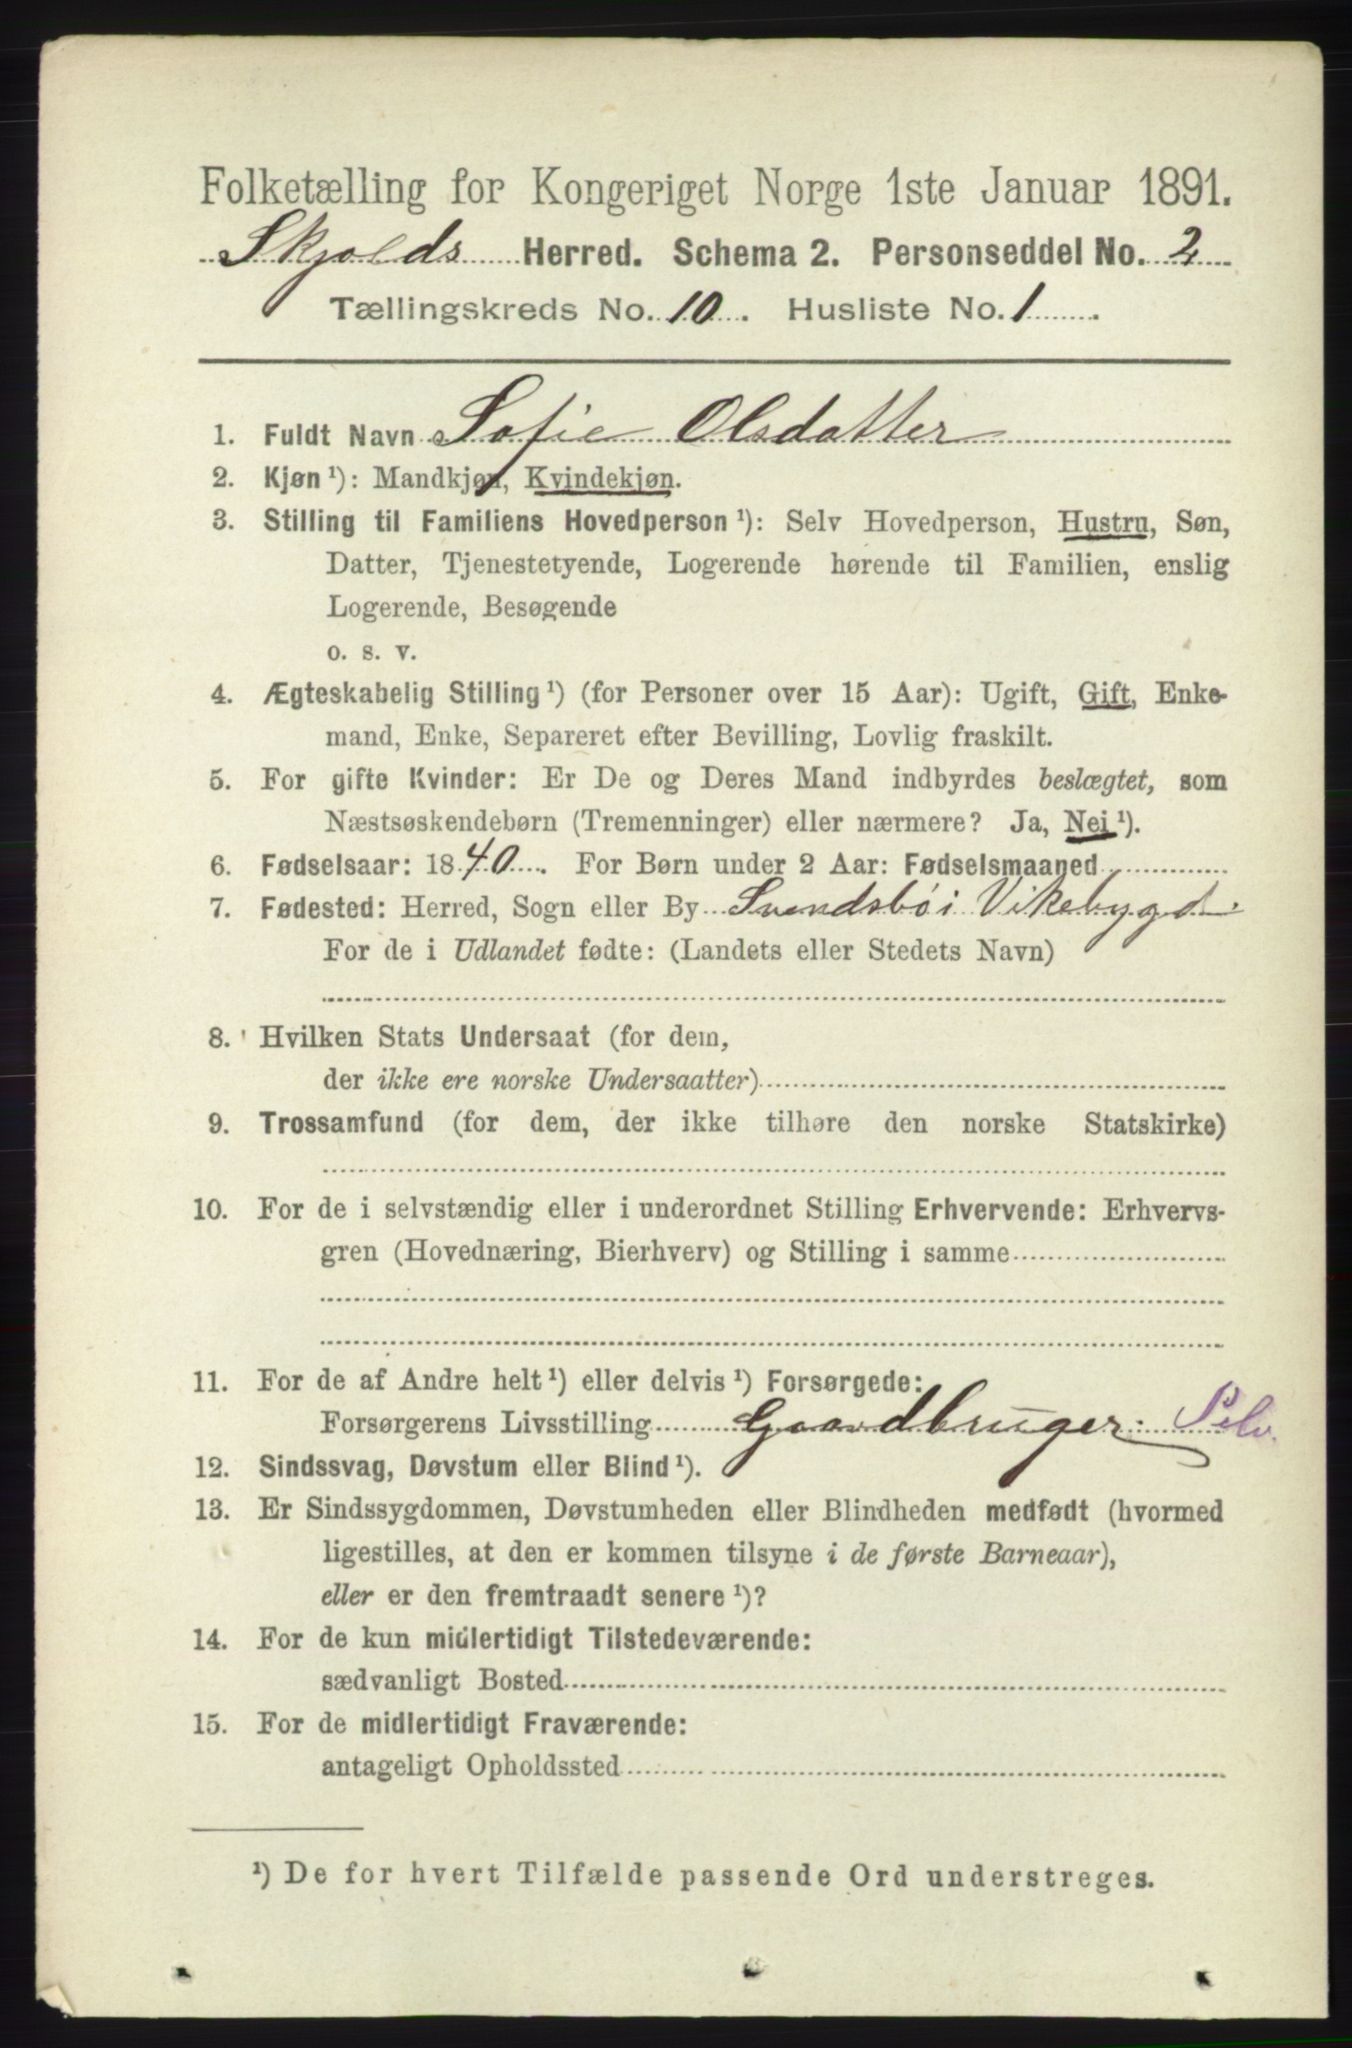 Folketælling for Kongeriget Norge 1ste Januar 1891.
Skjolds Herred. Schema 2. Personseddel No. 2
Tællingskreds No. 10. Husliste No. 1.
1. Fuldt Navn Sofie Olsdatter
2. Kjøn ¹): Mandkjøn, Kvindekjøn.
3. Stilling til Familiens Hovedperson ¹): Selv Hovedperson, Hustru, Søn,
Datter, Tjenestetyende, Logerende hørende til Familien, enslig
Logerende, Besøgende
o. s. v.
4. Ægteskabelig Stilling ¹) (for Personer over 15 Aar): Ugift, Gift, Enke-
mand, Enke, Separeret efter Bevilling, Lovlig fraskilt.
5. For gifte Kvinder: Er De og Deres Mand indbyrdes beslægtet, som
Næstsøskendebørn (Tremenninger) eller nærmere? Ja, Nei ¹).
6. Fødselsaar: 1840. For Børn under 2 Aar: Fødselsmaaned
7. Fødested: Herred, Sogn eller By Svendsbö i Vikebygd.
For de i Udlandet fødte: (Landets eller Stedets Navn)
8. Hvilken Stats Undersaat (for dem,
der ikke ere norske Undersaatter)
9. Trossamfund (for dem, der ikke tilhøre den norske Statskirke)
10. For de i selvstændig eller i underordnet Stilling Erhvervende: Erhvervs-
gren (Hovednæring, Bierhverv) og Stilling i samme
11. For de af Andre helt ¹) eller delvis ¹) Forsørgede:
Forsørgerens Livsstilling Gaardbruger. Selv.
12. Sindssvag, Døvstum eller Blind ¹).
13. Er Sindssygdommen, Døvstumheden eller Blindheden medfødt (hvormed
ligestilles, at den er kommen tilsyne i de første Barneaar),
eller er den fremtraadt senere ¹)?
14. For de kun midlertidigt Tilstedeværende:
sædvanligt Bosted
15. For de midlertidigt Fraværende:
antageligt Opholdssted
¹) De for hvert Tilfælde passende Ord understreges.